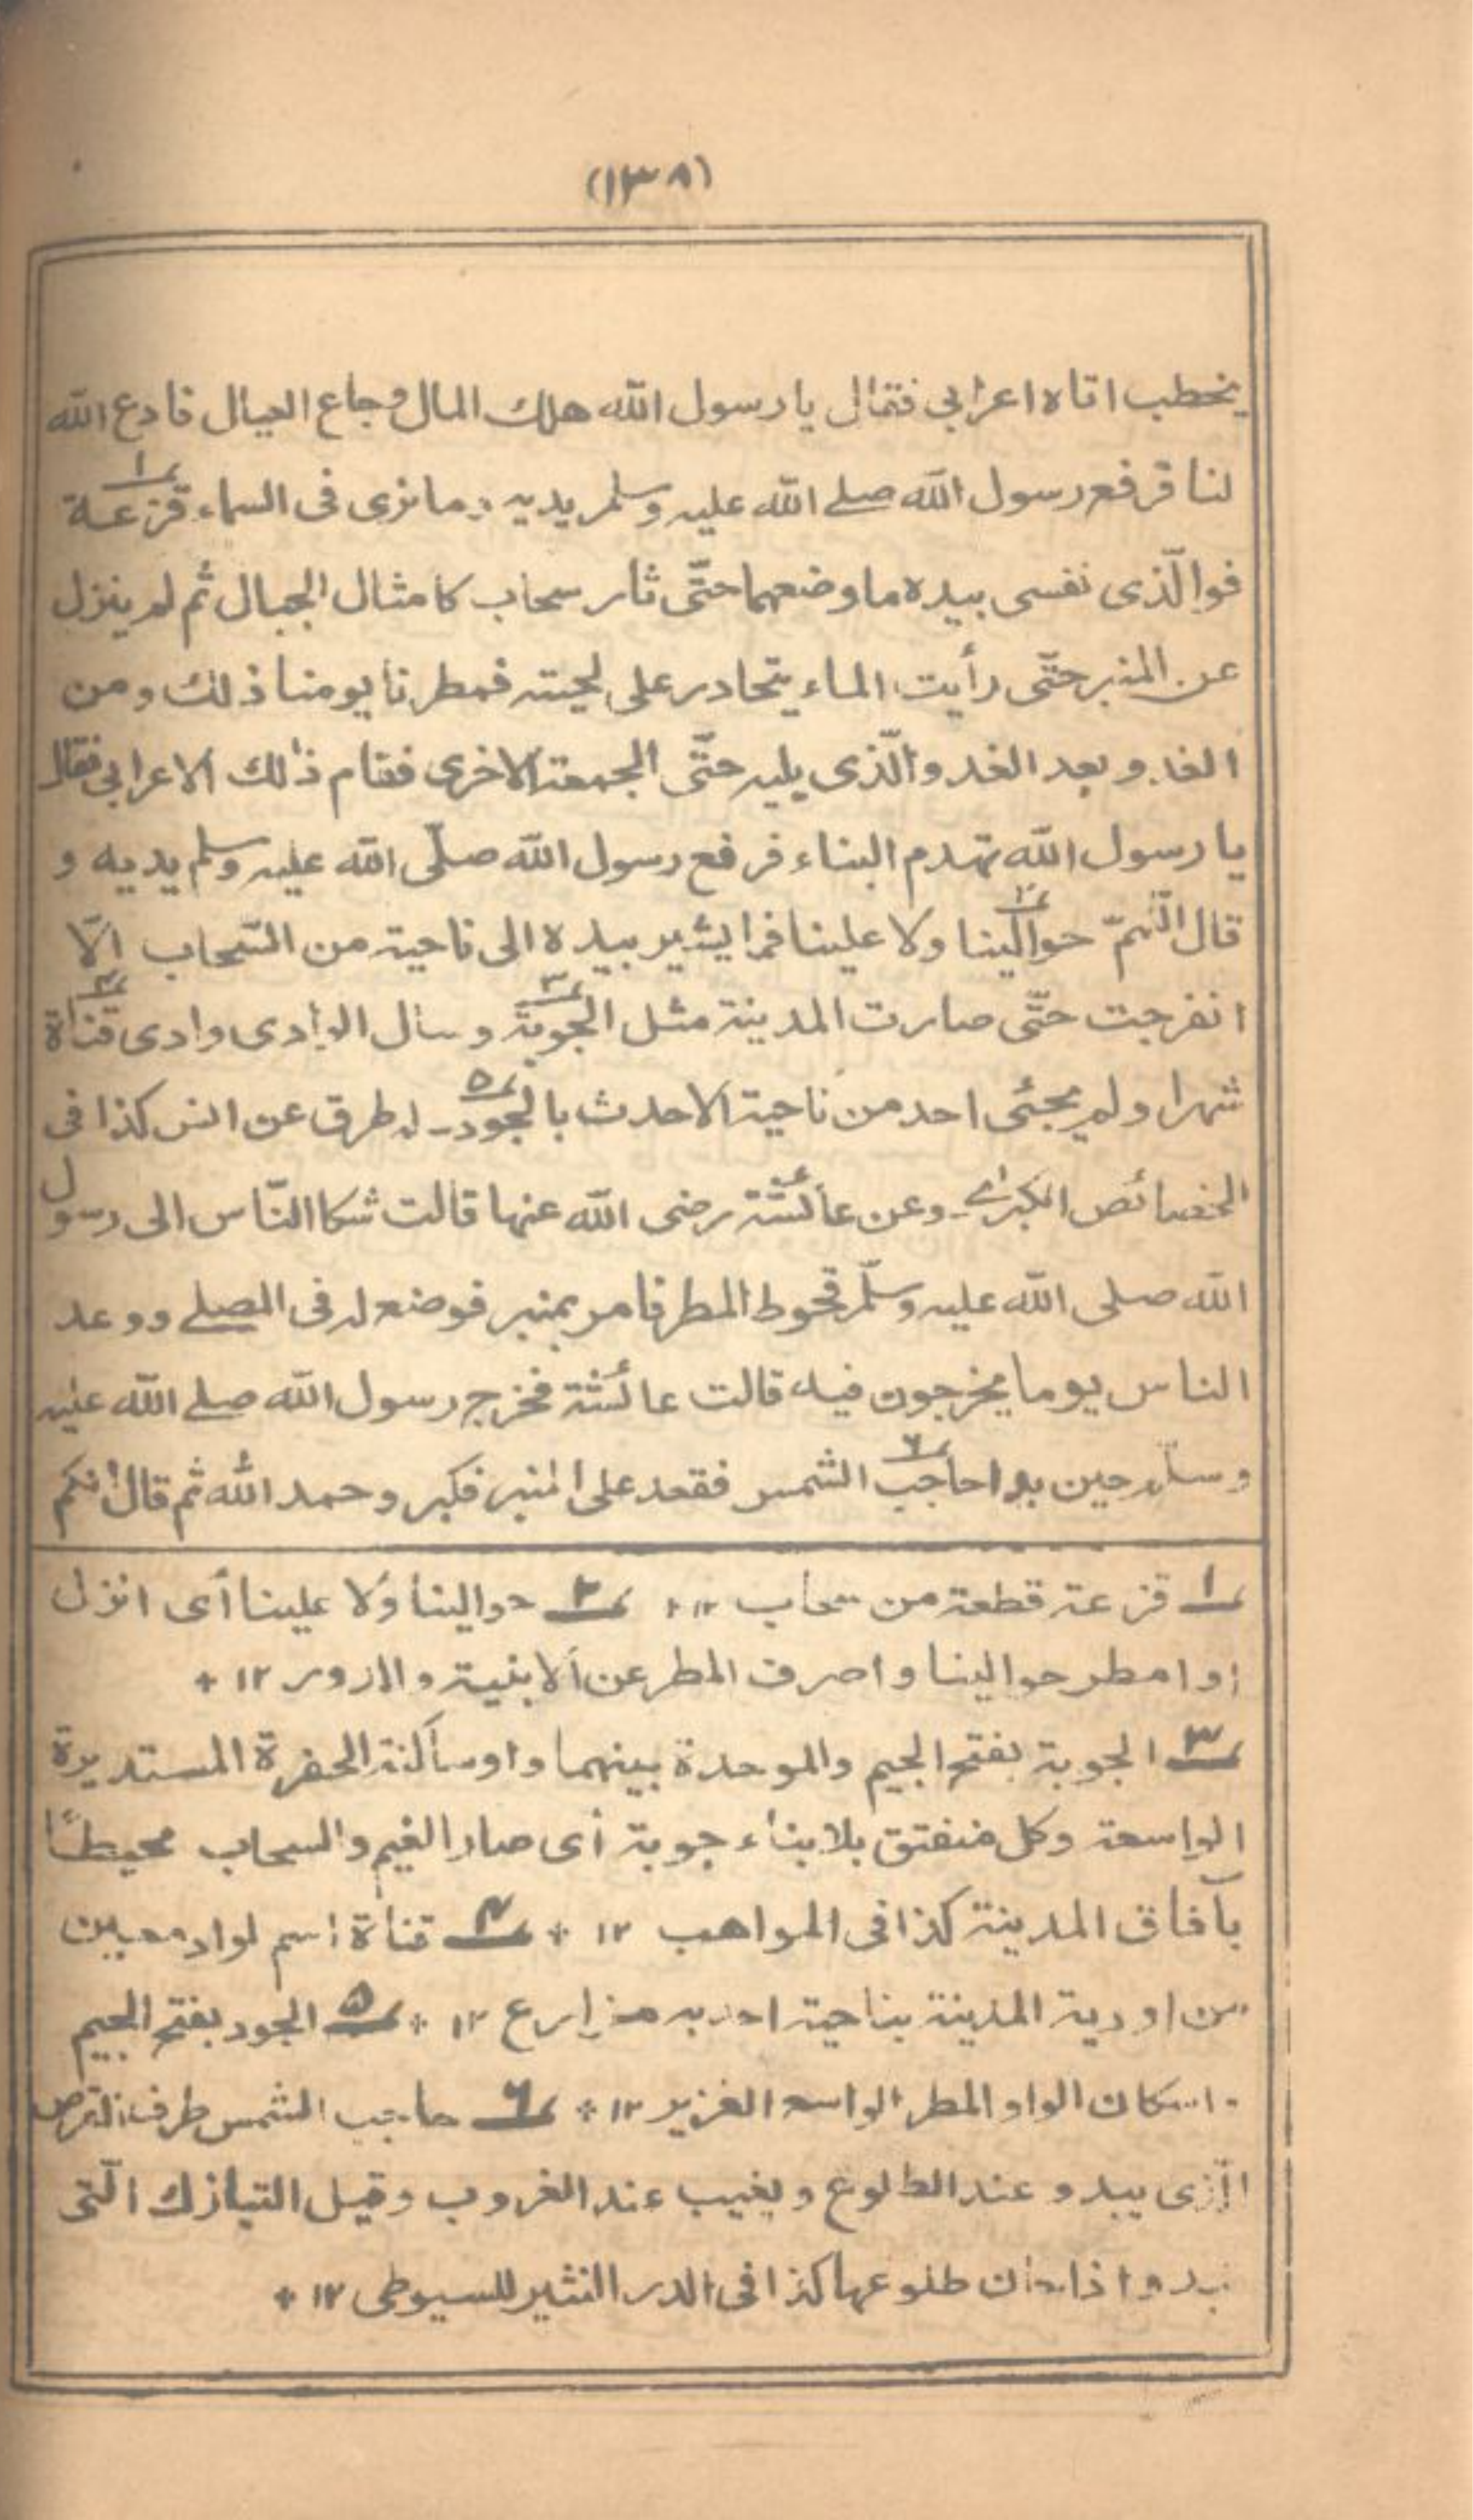 (١٣٨)
يخطب اتاه اعرابي فقال يا رسول الله هلك المال وجاع العيال فادع الله
لنا فرفع رسول الله صلے الله عليه وسلم يديه وما نرى فى السماء قزعة١
فوالّذى نفسى بيده ما وضعهما حتّى ثار سحاب كامثال الجبال ثم لم ينزل
عن المنبر حتّى رأيت الماء يتحادر على لحيته فمطرنا يومنا ذلك ومن
الغد وبعد الغد والّذى يليه حتّى الجمعة الاخرى فقام ذلك الاعرابي فقال
يا رسول الله تهدم البناء فرفع رسول الله صلّى الله عليه وسلم يديه و
قال اللّهمّ حوالينا٢ ولا علينا فما يشير بيده الى ناحية من السّحاب الّا
انفرجت حتّى صارت المدينة مثل الجوبة٣ وسال الوادى وادى قناة٤
شهرا ولم يجئى احد من ناحية الاحدث بالجود٥ـ له طرق عن انس كذا فى
الخصائص الكبراے ـ وعن عائشة رضى الله عنها قالت شكا النّاس الى رسول
الله صلى الله عليه وسلّم قحوط المطر فامر بمنبر فوضع له فى المصلے ووعد
الناس يوما يخرجون فيه قالت عائشة فخرج رسول الله صلے الله عليه
وسلّم حين بدا حاجب٦ الشمس فقعد على المنبر فكبر وحمد الله ثم قال انكم
١ قزعة قطعة من سحاب ١٢ + ٢ حوالينا ولا علينا أى انزل
او امطر حوالينا واصرف المطر عن الابنية والدور ١٢ +
٣ الجوبة بفتح الجيم والموحدة بينهما واو ساكنة الحفرة المستديرة
الواسعة وكل منفتق بلا بناء جوبة أى صار الغيم والسحاب محيطًا
بآفاق المدينة كذا فى المواهب ١٢ + ٤ قناة اسم لواد معين
من اودية المدينة بناحية احد به مزارع ١٢ + ٥ الجود بفتح الجيم
واسكان الواو المطر الواسع الغزير ١٢ + ٦ حاجب الشمس طرف القرص
الّذى يبدو عند الطلوع ويغيب عند الغروب وقيل التيازك الّتى
تبدو اذا حان طلوعها كذا فى الدر النثير للسيوطى ١٢ +